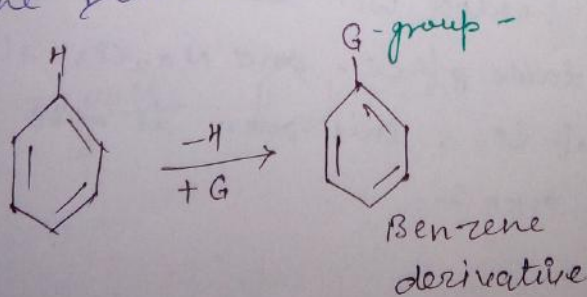 H
G - group -
-H
+ G
Benzene
derivative